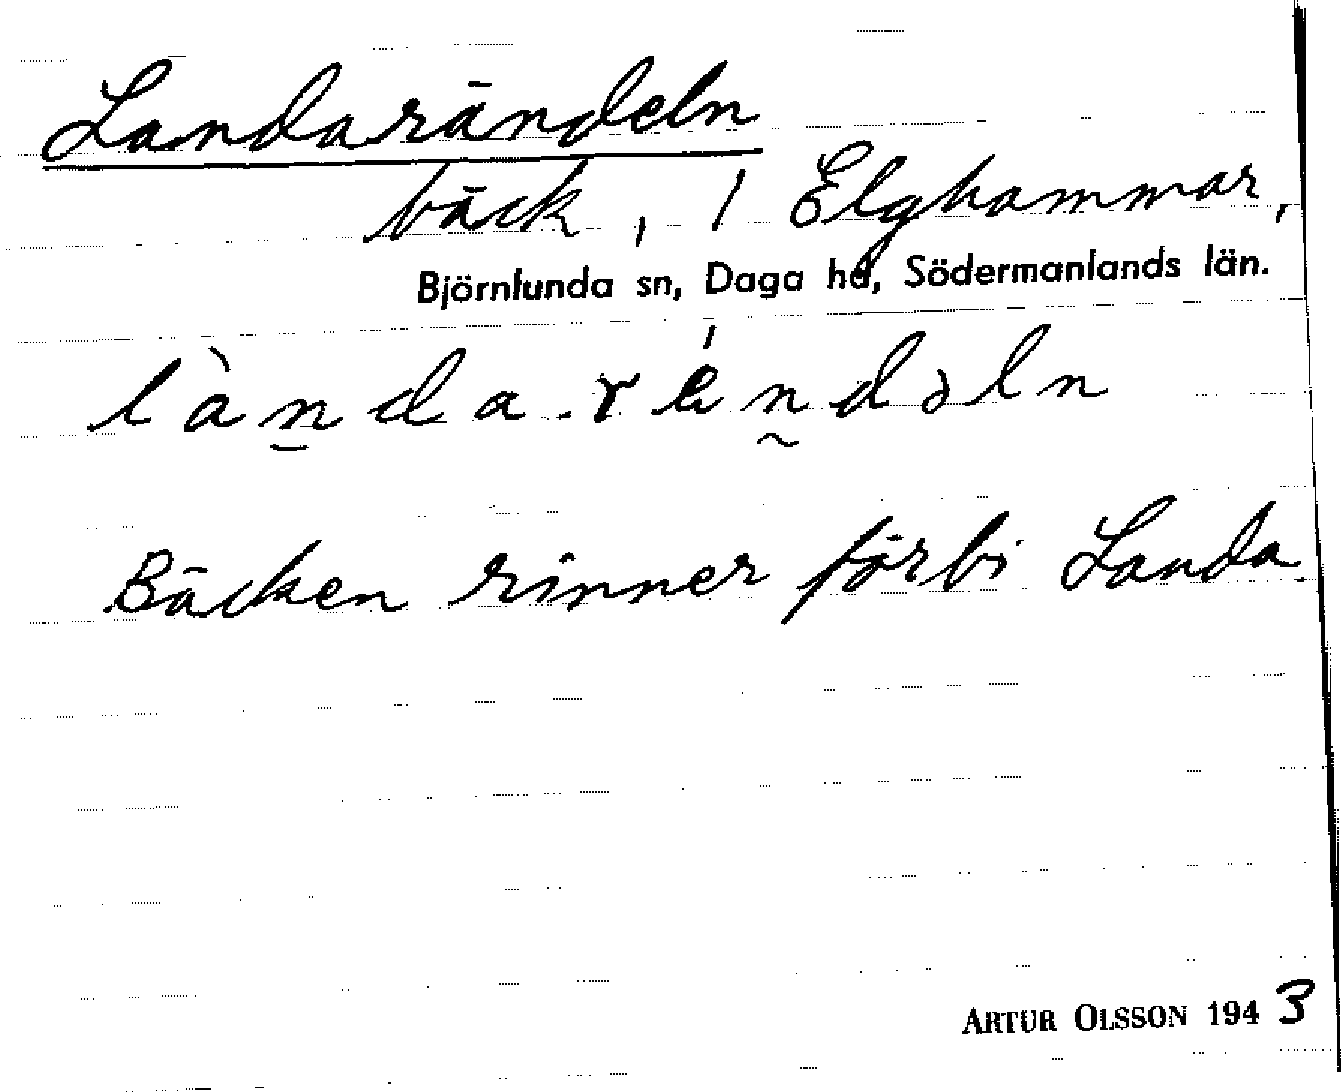 Landarändeln
bäck, / Elghammar,
Björnlunda sn, Daga hd, Södermanlands län.
lànda.réndəln
Bäcken rinner förbi Landa
ARTUR OLSSON 1943